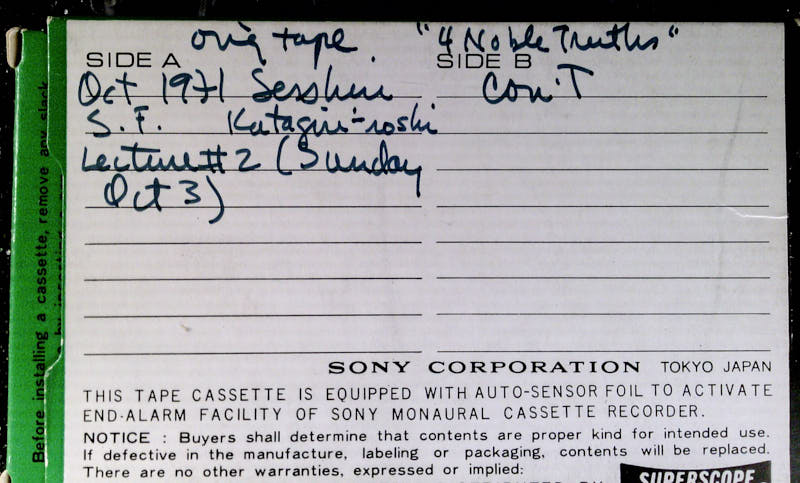 orig tape. "4 Noble Truths"
SIDE A SIDE B
Oct 1971 Sesshin con'T
S.F. Katagiri-roshi
Lecture #2 (Sunday
Oct 3)
SONY CORPORATION TOKYO JAPAN
THIS TAPE CASSETTE IS EQUIPPED WITH AUTO-SENSOR FOIL TO ACTIVATE
END-ALARM FACILITY OF SONY MONAURAL CASSETTE RECORDER.
NOTICE : Buyers shall determine that contents are proper kind for intended use.
If defective in the manufacture, labeling or packaging, contents will be replaced.
There are no other warranties, expressed or implied:
SUPERSCOPE
Before installing a cassette, remove any slack